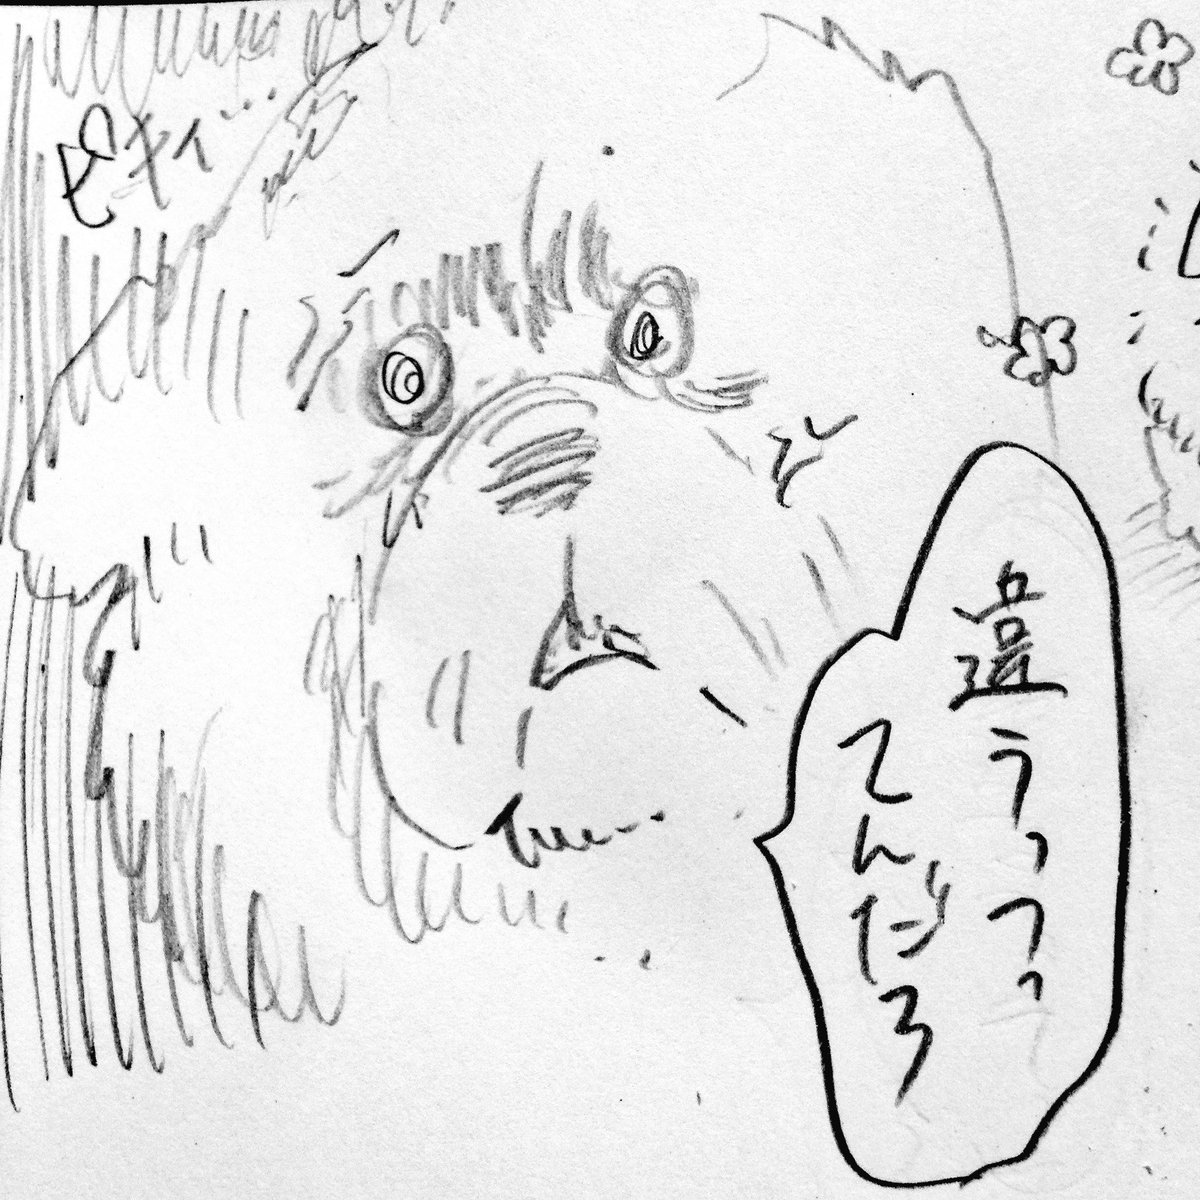 違うっつっ
てんだろ
ピキィ…